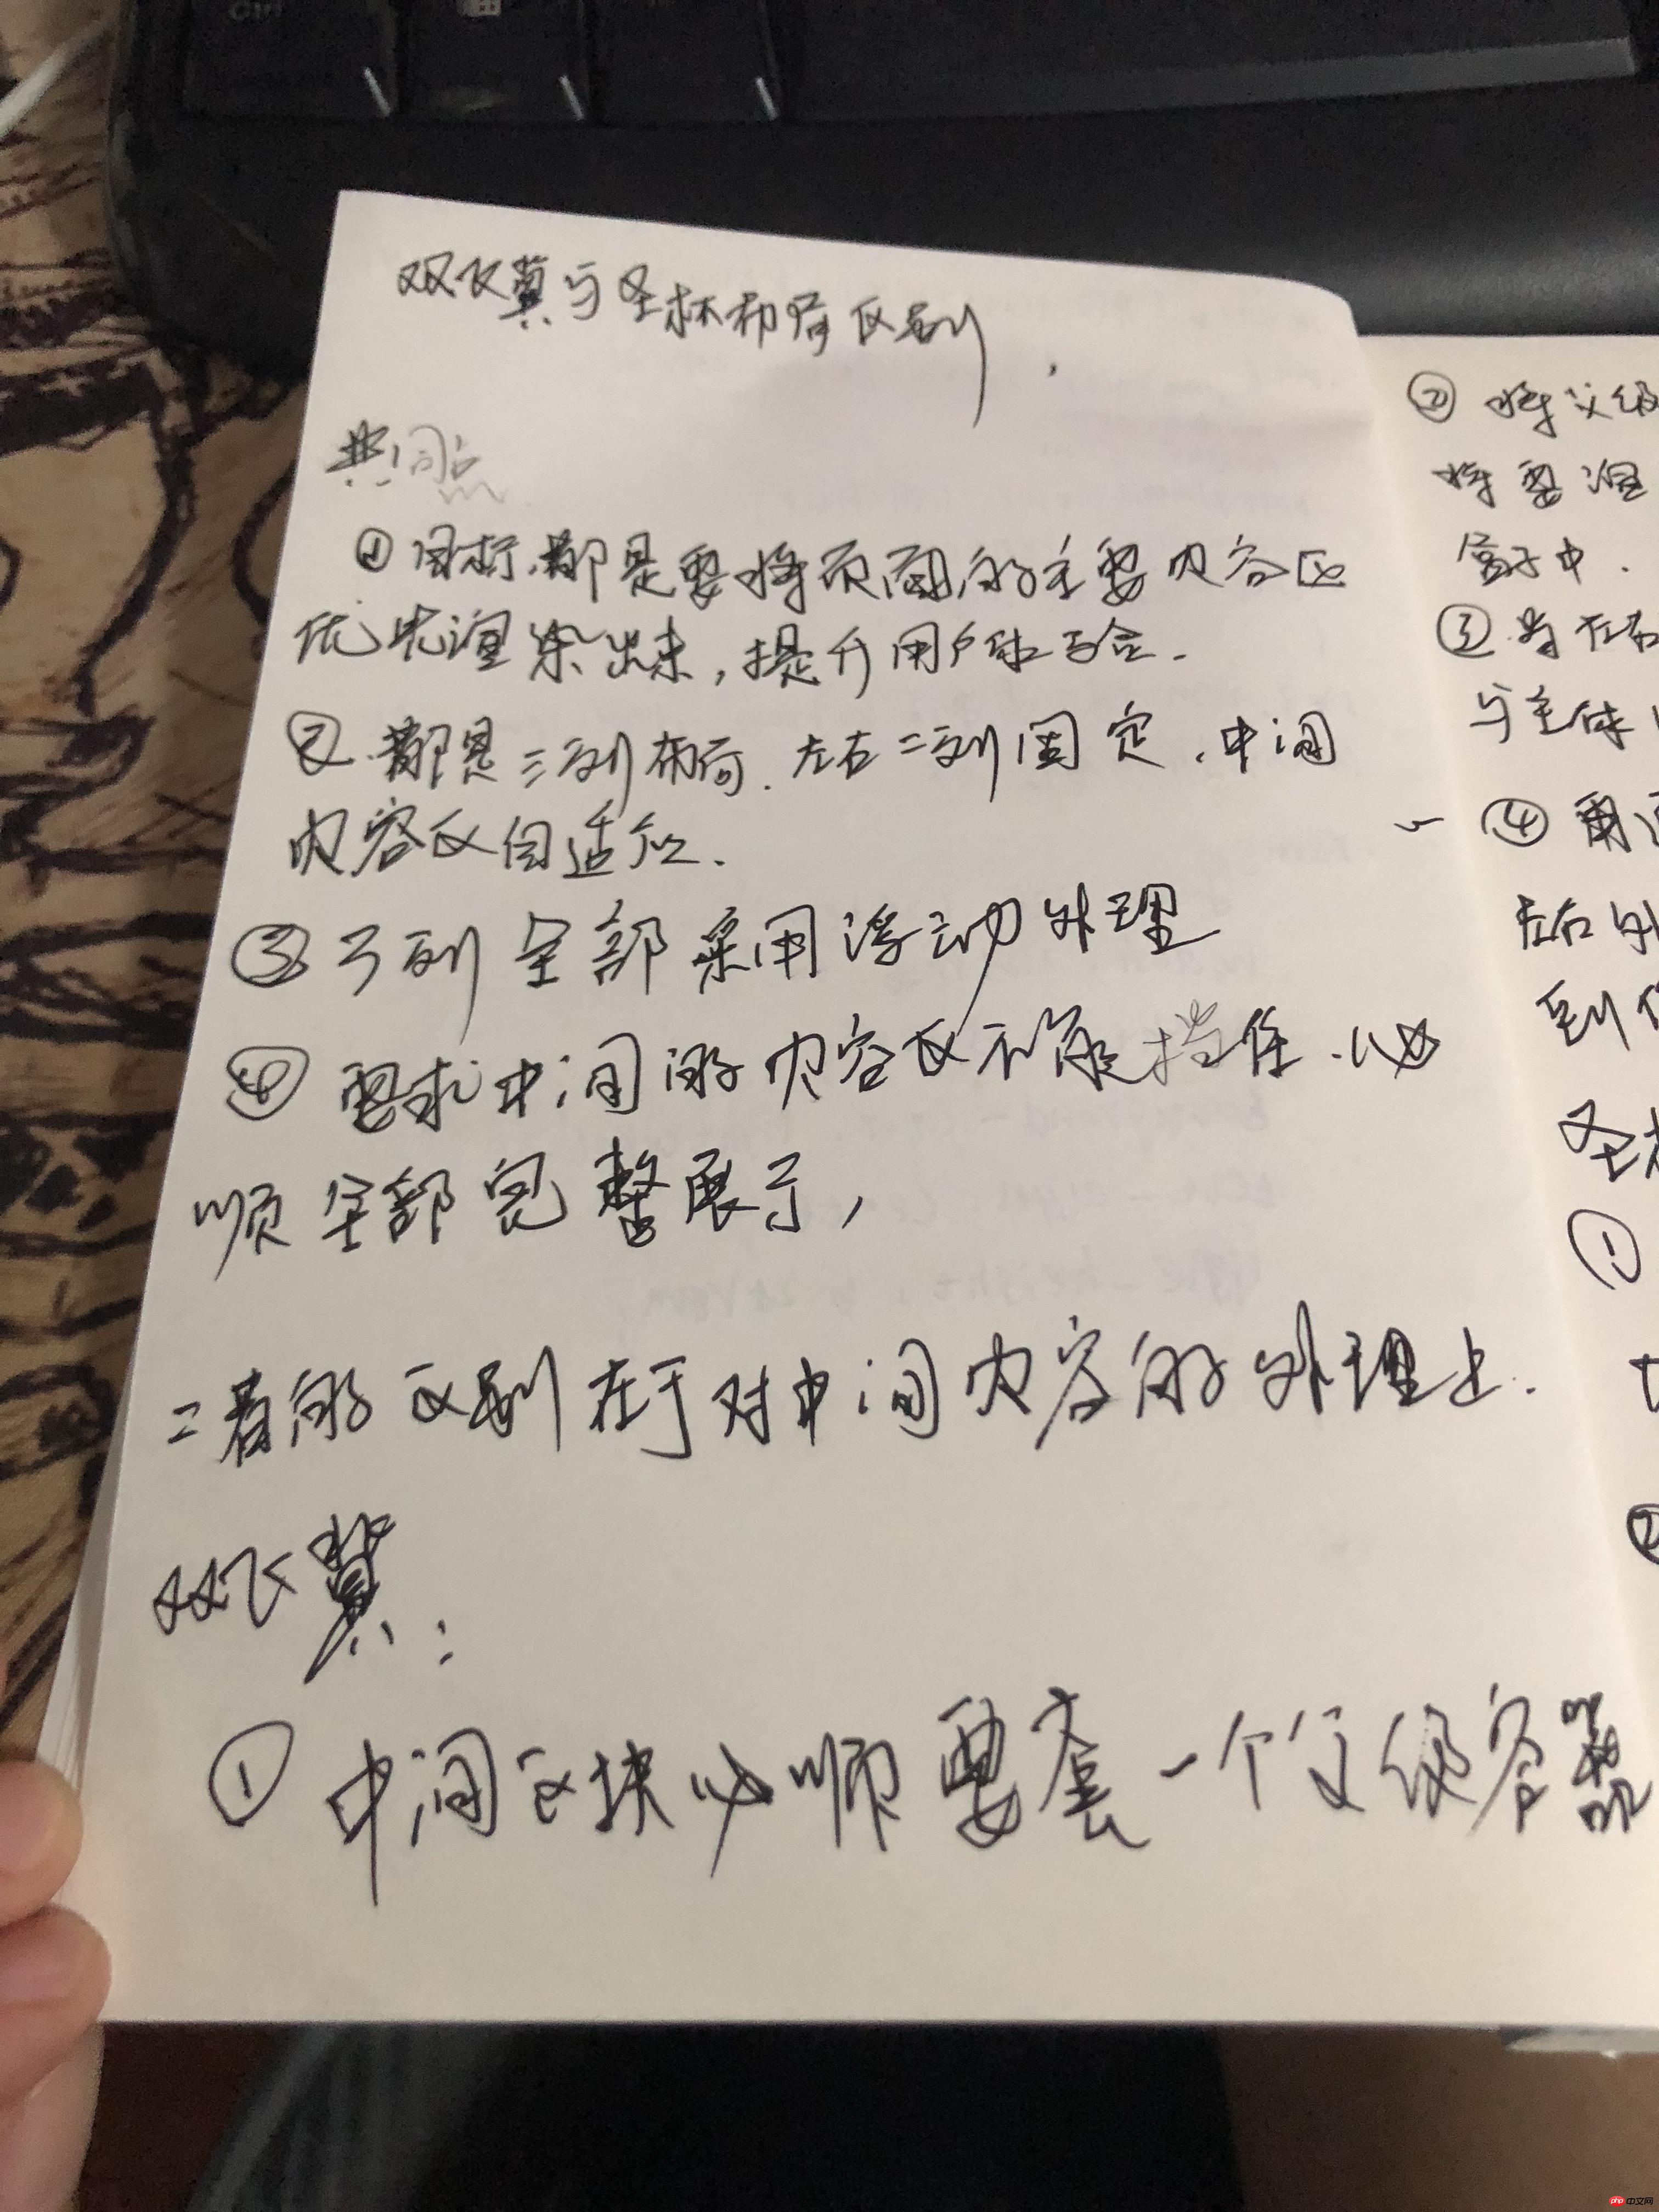 Ctrl
双飞翼与圣杯布局区别
共同点
① 目标,都是要将页面的主要内容区
优先渲染出来,提升用户体验.
② 都是三列布局.左右二列固定,中间
内容区自适应.
③ 3列全部采用浮动处理
④ 要求中间的内容区不能挡住.必
须全部完整展示,
二者的区别在于对中间内容的处理上.
双飞翼:
① 中间区块必须要套一个父级容器
② 将父级
将要渲
盒子中.
③ 当左右
与主体
④ 再
左右外
到
圣杯
①
②
php 中文网